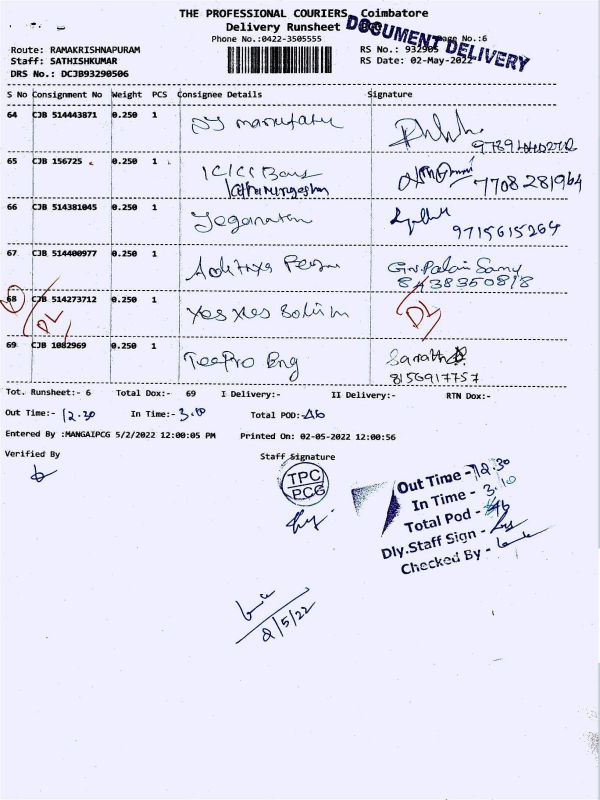 THE PROFESSIONAL COURIERS, Coimbatore
Delivery Runsheet
DOCUMENT DELIVERY
Phone No.:0422-3505555
No.:6
Route: RAMAKRISHNAPURAM
RS No.: 932905
Staff: SATHISHKUMAR
RS Date: 02-May-2022
DRS No.: DCJB93290506
S No Consignment No Weight PCS Consignee Details Signature
64 CJB 514443871 0.250 1
65 CJB 156725 0.250 1 ICICI Bank
7708281964
66 CJB 514381045 0.250 1
9715615264
67 CJB 514400977 0.250 1
8438350818
68 CJB 514273712 0.250 1
DL DL
69 CJB 1082969 0.250 1 TeePro Eng Sarath
8156917757
Tot. Runsheet:- 6 Total Dox:- 69 I Delivery:- II Delivery:- RTN Dox:-
Out Time:- 12.30 In Time:- 3.10 Total POD:- 46
Entered By :MANGAIPCG 5/2/2022 12:00:05 PM Printed On: 02-05-2022 12:00:56
Verified By Staff Signature
TPC
PCG
Out Time - 12.30
In Time - 3.10
Total Pod - 46
Dly.Staff Sign -
Checked By -
2/5/22